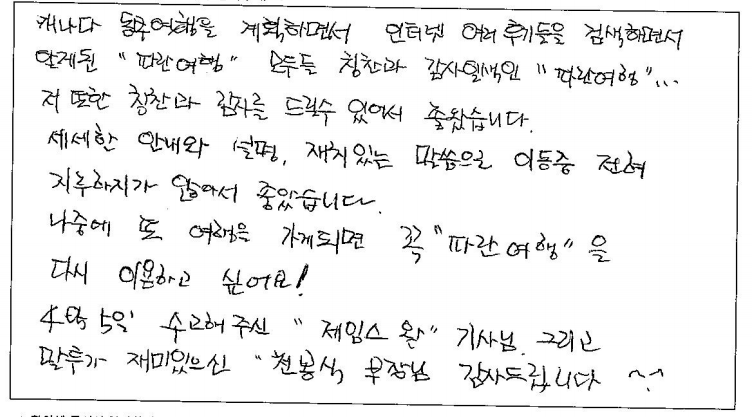 캐나다 동부여행을 계획하면서 인터넷 여러 후기들을 검색하면서
알게된 "파란여행" 모두들 칭찬과 감사일색인 "파란여행"...
저 또한 칭찬과 감사를 드릴수 있어서 좋았습니다.
세세한 안내와 설명, 재치있는 말씀으로 이동중 전혀
지루하지가 않아서 좋았습니다.
나중에 또 여행을 가게되면 꼭 "파란여행" 을
다시 이용하고 싶어요!
4박 5일 수고해주신 " 제임스 완" 기사님. 그리고
말투가 재미있으신 "천봉식 부장님 감사드립니다 ^^